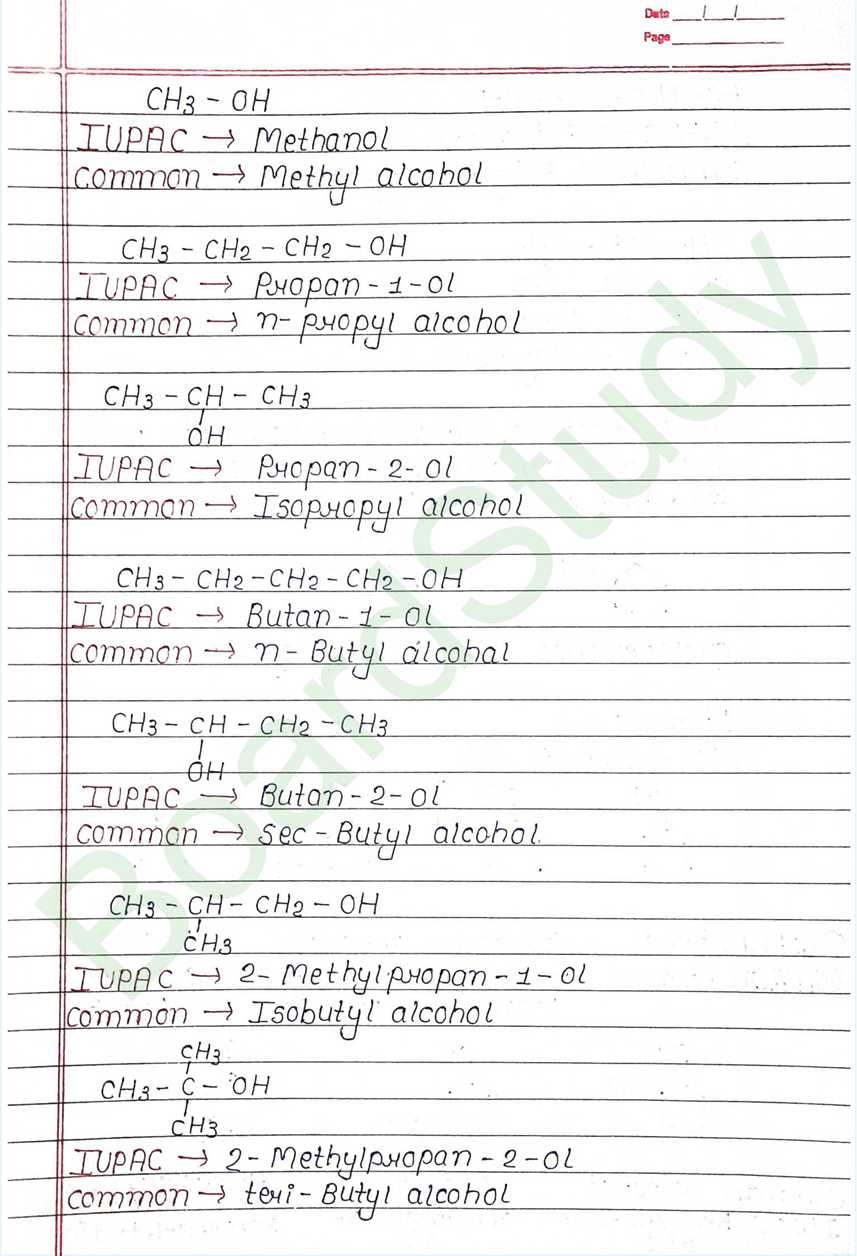 Date / /
Page
CH3 - OH
IUPAC → Methanol
Common → Methyl alcohol
CH3 - CH2 - CH2 - OH
IUPAC → Propan - 1 - Ol
Common → n- propyl alcohol
CH3 - CH - CH3
OH
IUPAC → Propan - 2 - Ol
Common → Isopropyl alcohol
CH3 - CH2 - CH2 - CH2 - OH
IUPAC → Butan - 1 - Ol
Common → n - Butyl alcohal
CH3 - CH - CH2 - CH3
OH
IUPAC → Butan - 2 - Ol
Common → Sec - Butyl alcohol
CH3 - CH - CH2 - OH
CH3
IUPAC → 2 - Methylpropan - 1 - Ol
Common → Isobutyl alcohol
CH3
CH3 - C - OH
CH3
IUPAC → 2 - Methylpropan - 2 - Ol
Common → teri - Butyl alcohol
BoardStudy